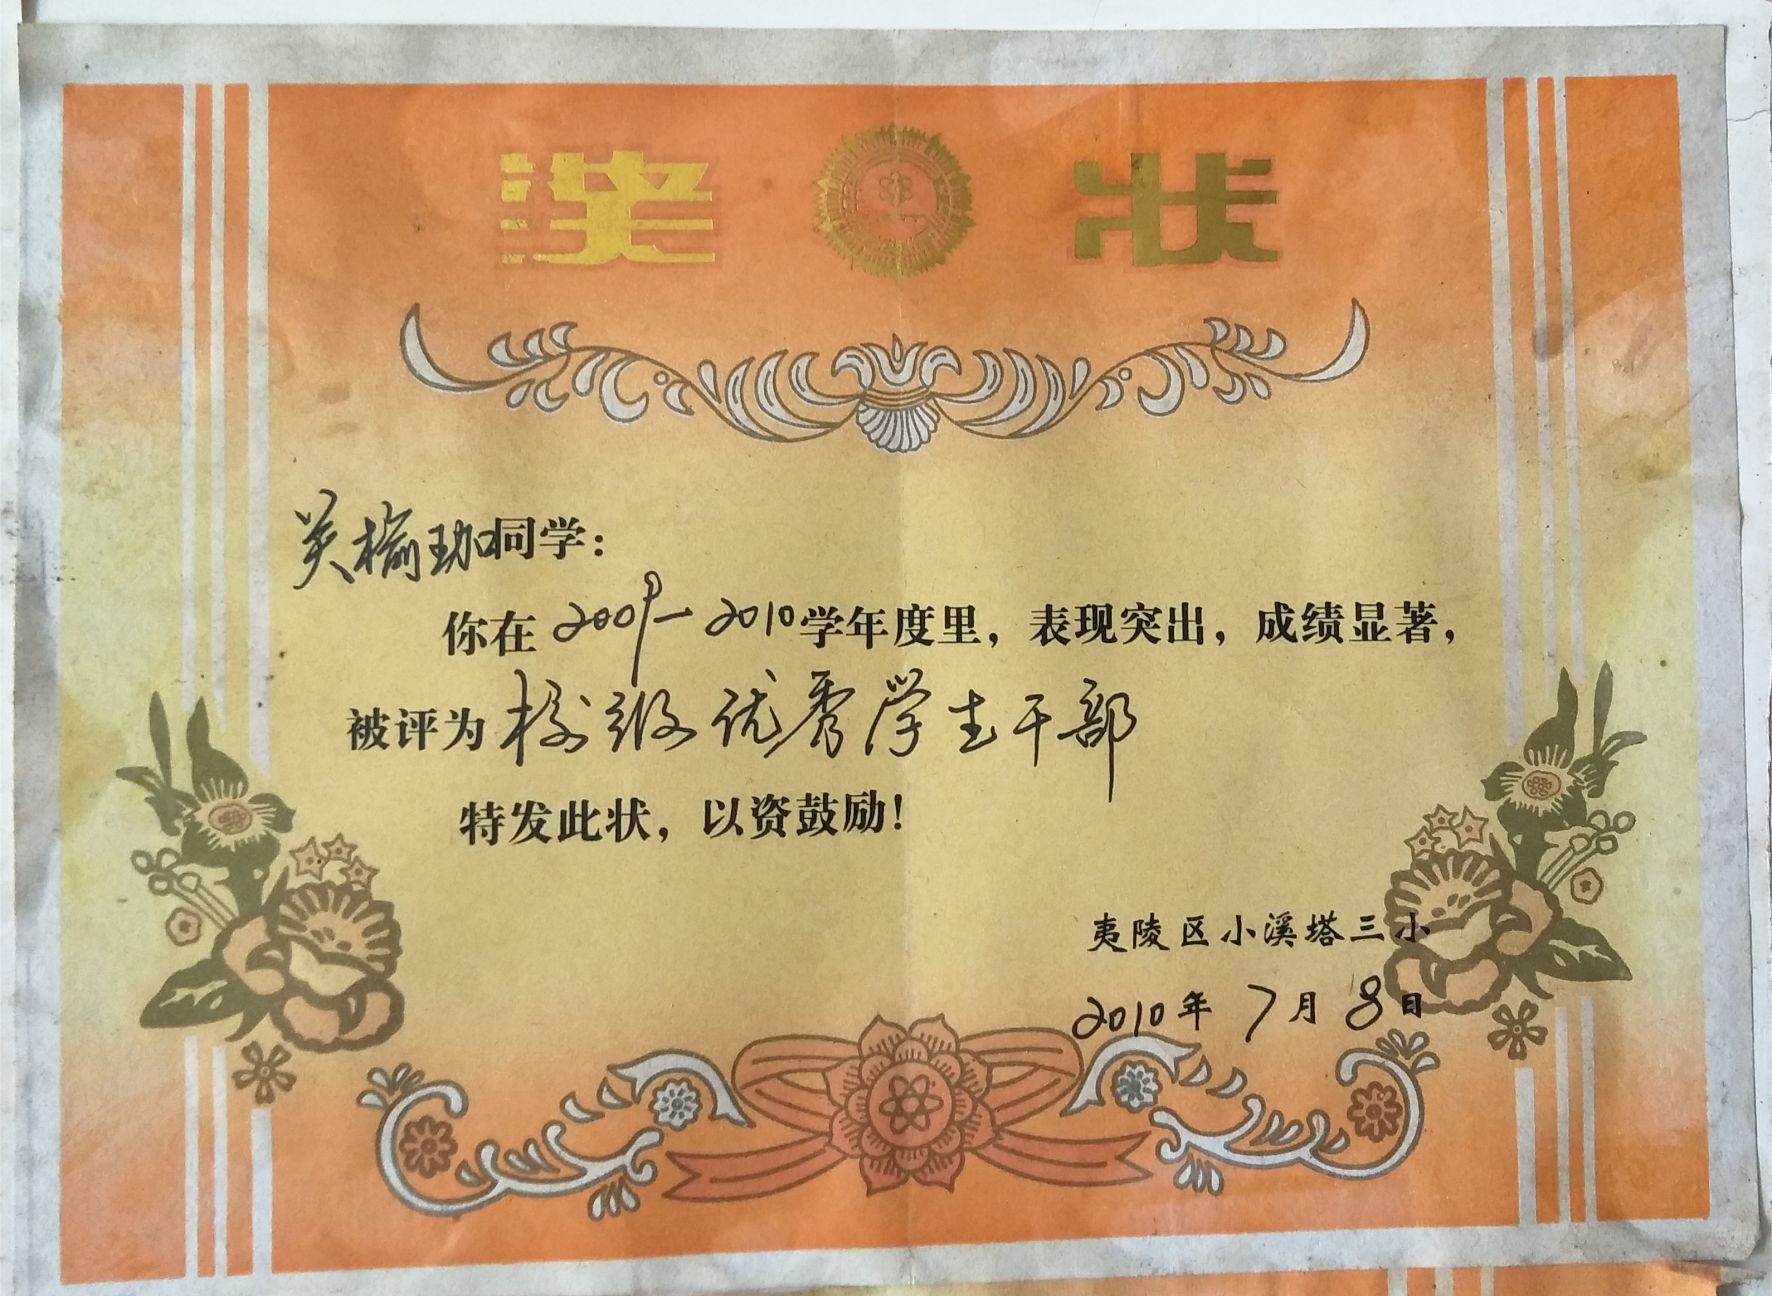 奖状
关榆珈同学：
你在2009一2010学年度里，表现突出，成绩显著，
被评为校级优秀学生干部
特发此状，以资鼓励！
夷陵区小溪塔三小
2010年7月8日